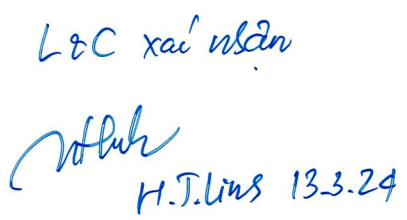 L&C xác nhận
H.T.Linh 13.3.24